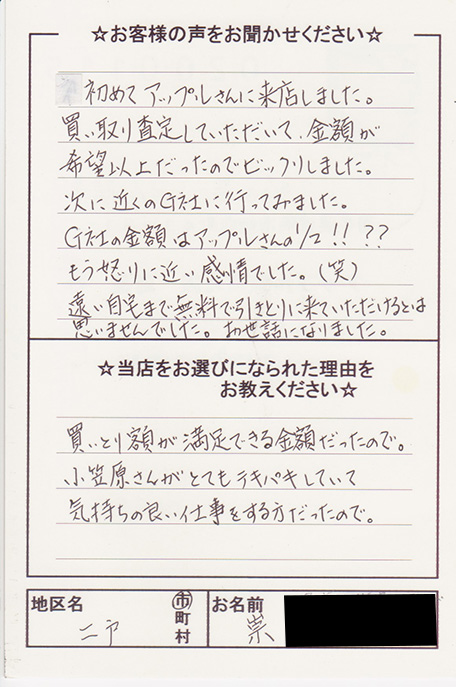 ☆お客様の声をお聞かせください☆
初めてアップルさんに来店しました。
買い取り査定していただいて、金額が
希望以上だったのでビックリしました。
次に近くのG社に行ってみました。
G社の金額はアップルさんの1/2!!??
もう怒りに近い感情でした。(笑)
遠い自宅まで無料で引きとりに来ていただけるとは
思いませんでした。お世話になりました。
☆当店をお選びになられた理由を
お教えください☆
買いとり額が満足できる金額だったので。
小笠原さんがとてもテキパキしていて
気持ちの良い仕事をする方だったので。
地区名
二戸
市
町
村
お名前
崇